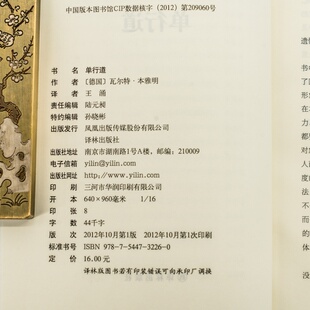 中国版本图书馆CIP数据核字（2012）第209060号
书　　名 单行道
作　　者 〔德国〕瓦尔特·本雅明
译　　者 王　涌
责任编辑 陆元昶
特约编辑 孙晓彬
出版发行 凤凰出版传媒股份有限公司
译林出版社
出版社地址 南京市湖南路1号A楼，邮编：210009
电子信箱 yilin@yilin.com
出版社网址 http://www.yilin.com
印　　刷 三河市华润印刷有限公司
开　　本 640×960毫米　1/16
印　　张 8
字　　数 44千字
版　　次 2012年10月第1版　2012年10月第1次印刷
标准书号 ISBN 978-7-5447-3226-0
定　　价 16.00元
译林版图书若有印装错误可向承印厂调换